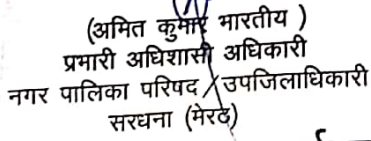 (अमित कुमार भारतीय )
प्रभारी अधिशासी अधिकारी
नगर पालिका परिषद / उपजिलाधिकारी
सरधना (मेरठ)